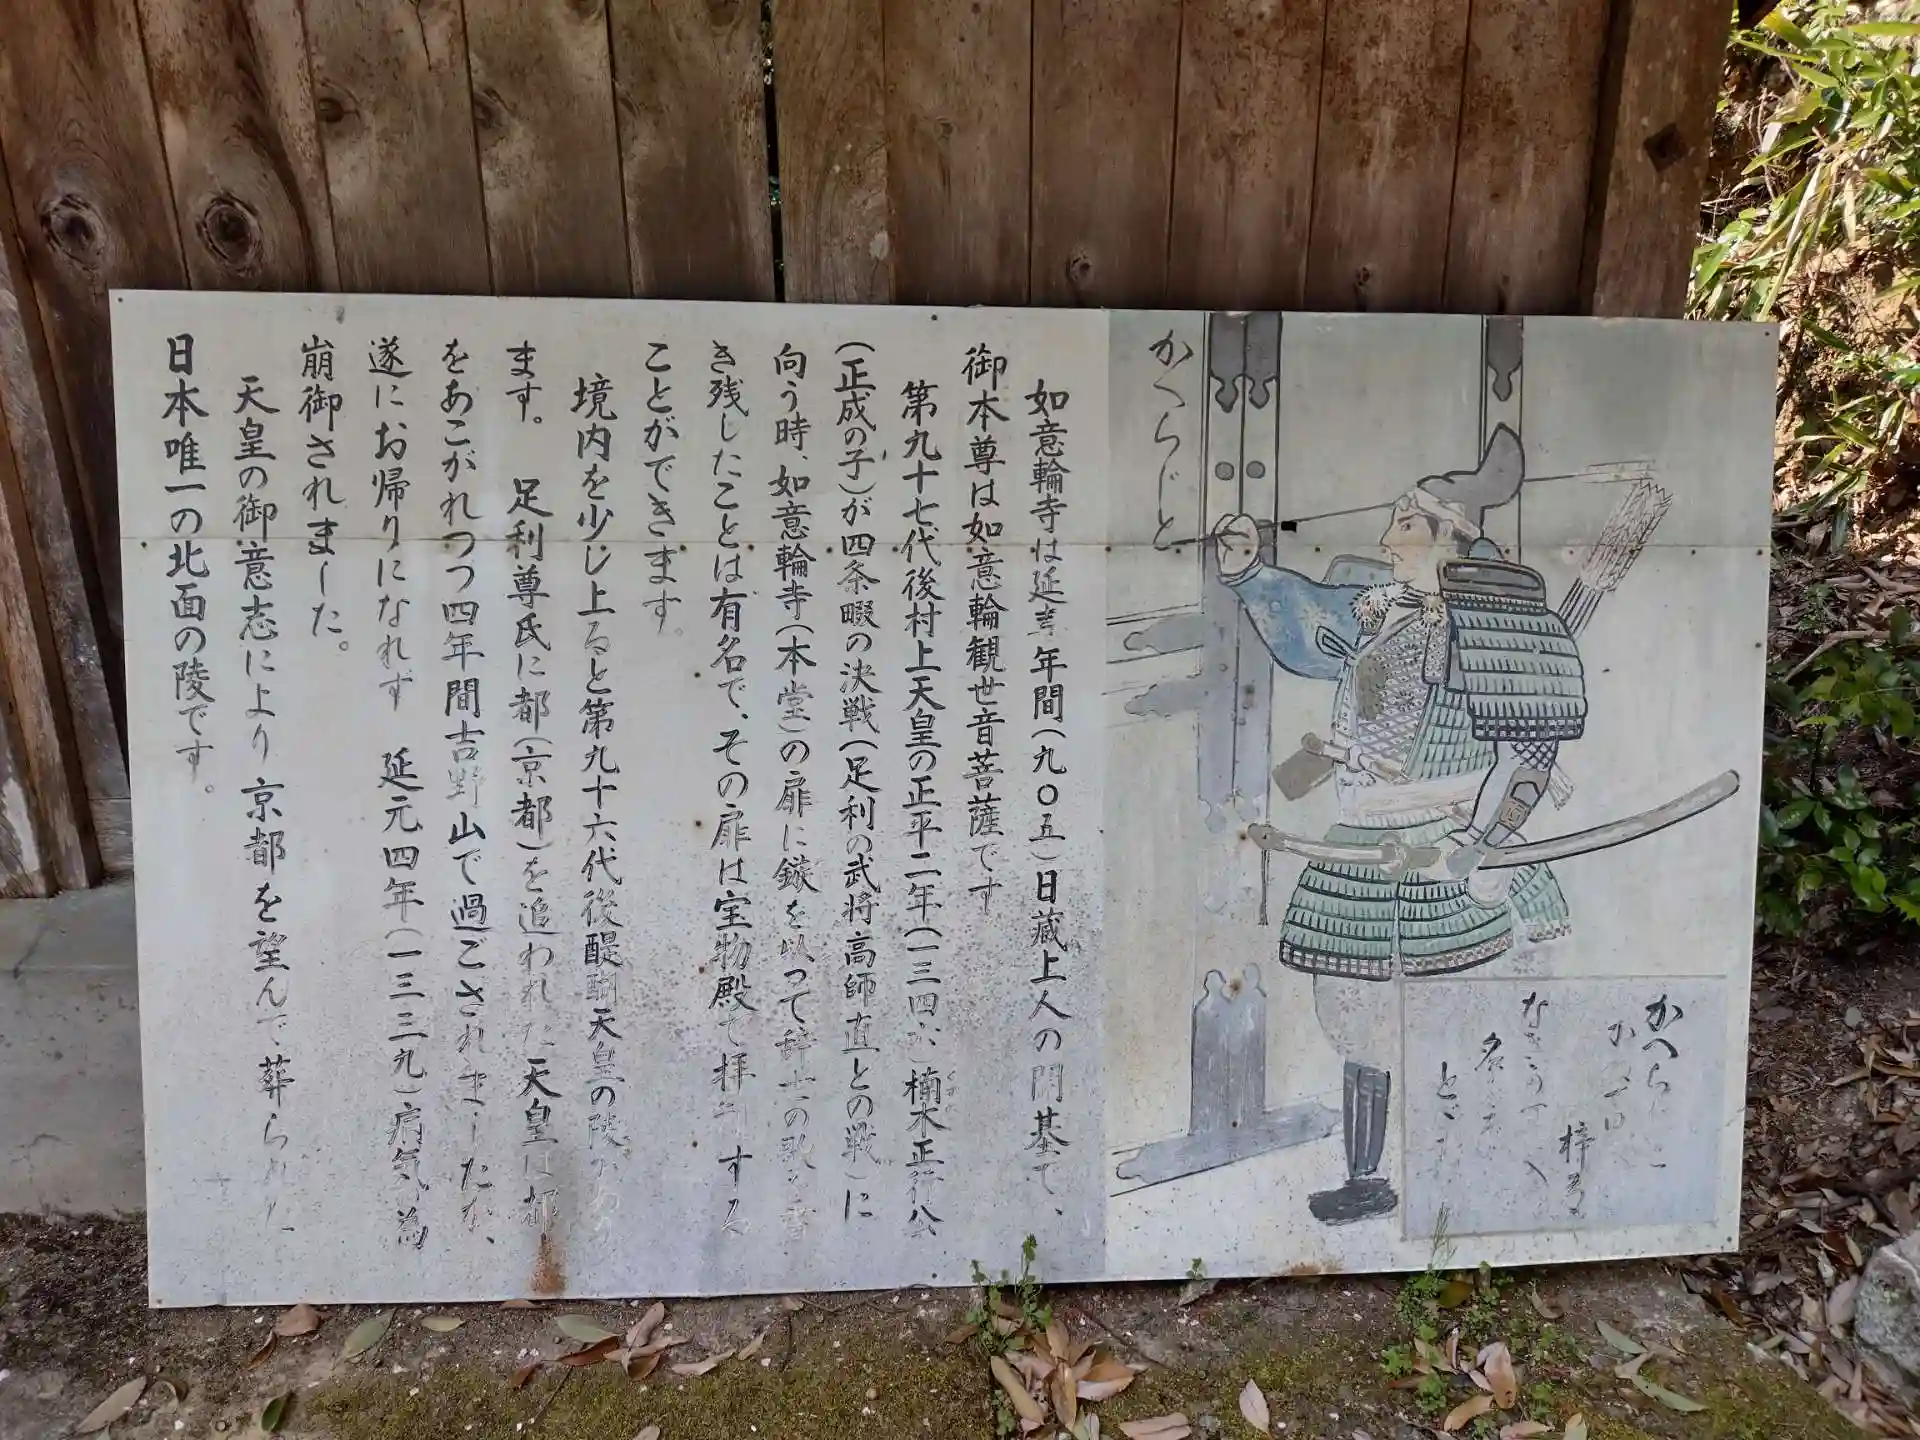 かへらじと
如意輪寺は延喜年間(九〇五)日蔵上人の開基で、
御本尊は如意輪観世音菩薩です
第九十七代後村上天皇の正平二年(一三四六)楠木正行公
(正成の子)が四条畷の決戦(足利の武将高師直との戦)に
向う時、如意輪寺(本堂)の扉に鏃を以って辞世の歌を書
き残したことは有名で、その扉は宝物殿で拝观する
ことができます。
境内を少し上ると第九十六代後醍醐天皇の陵があり
ます。 足利尊氏に都(京都)を追われた天皇は都
をあこがれつつ四年間吉野山で過ごされましたが、
遂にお帰りになれず 延元四年(一三三九)病気の為
崩御されました。
天皇の御意志により京都を望んで葬られた
日本唯一の北面の陵です。
かへらじと
梓弓